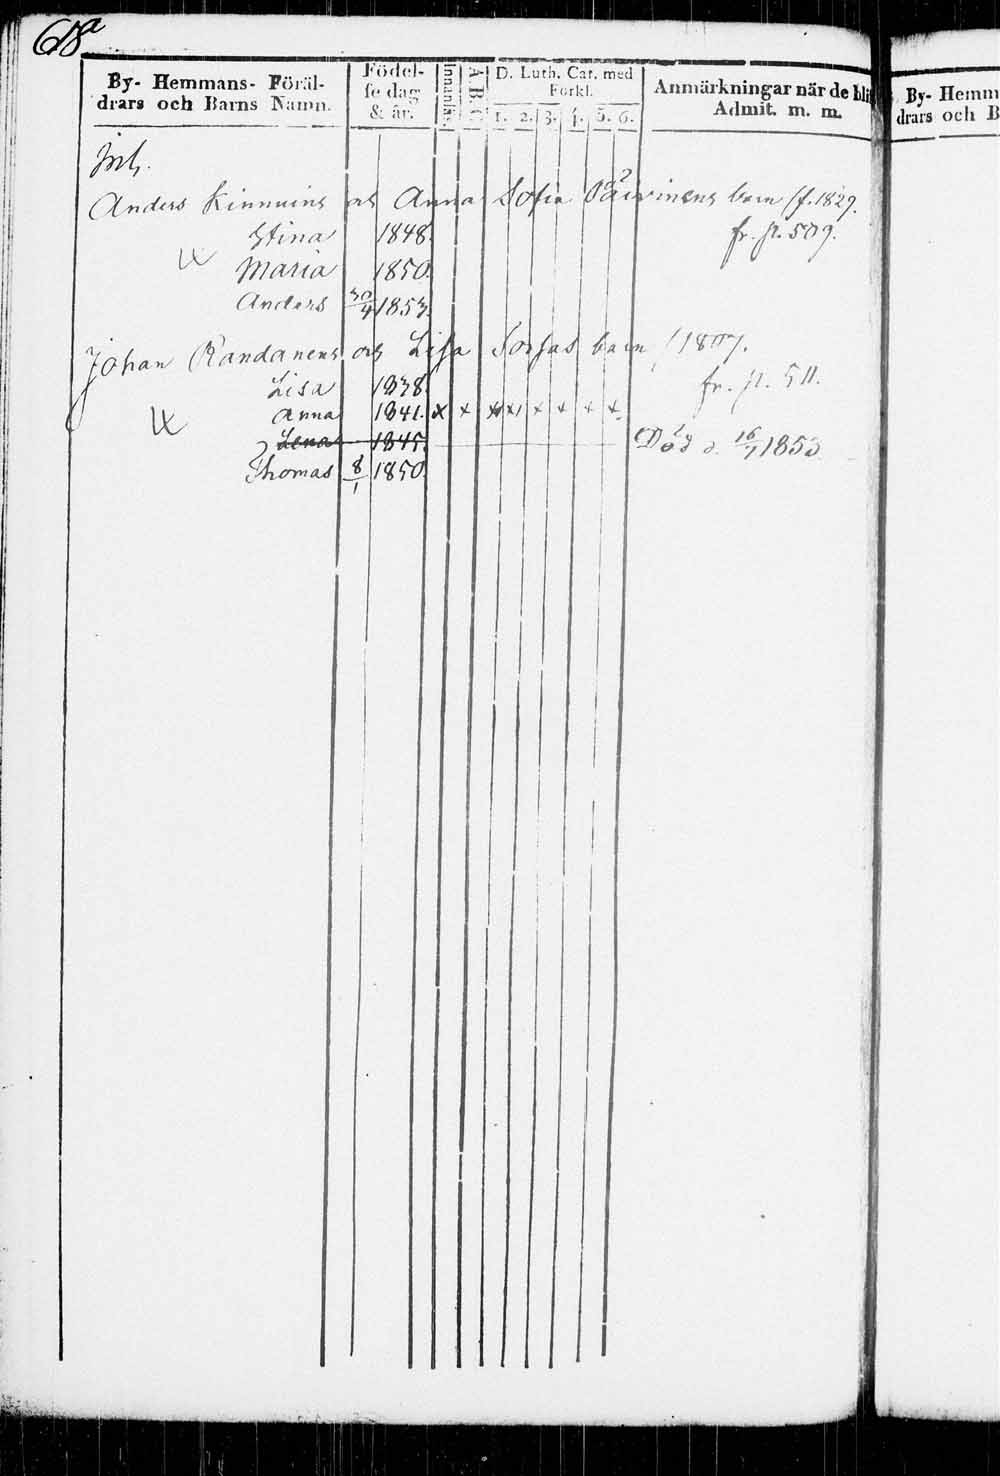 By- Hemmans- Föräl-
drars och Barns Namn.
Födel-
se dag
& år.
Innanläs.
A.B.C.
D. Luth. Cat. med
Forkl.
1. 2. 3. 4. 5. 6.
Anmärkningar när de bli
Admit. m. m.
Inh.
Anders Kinnuins och Anna Sofia Päivinens barn /f. 1829.
Stina 1848. fr. p. 509.
Maria 1850.
Anders 30/4 1853.
Johan Randanens och Lisa Sorsas barn /1807.
Lisa 1838. fr. p. 511.
Anna 1841. x x x x x x x x
Lena 1845. Död d. 16/7 1853
Thomas 8/1 1850.
By- Hemm
drars och B